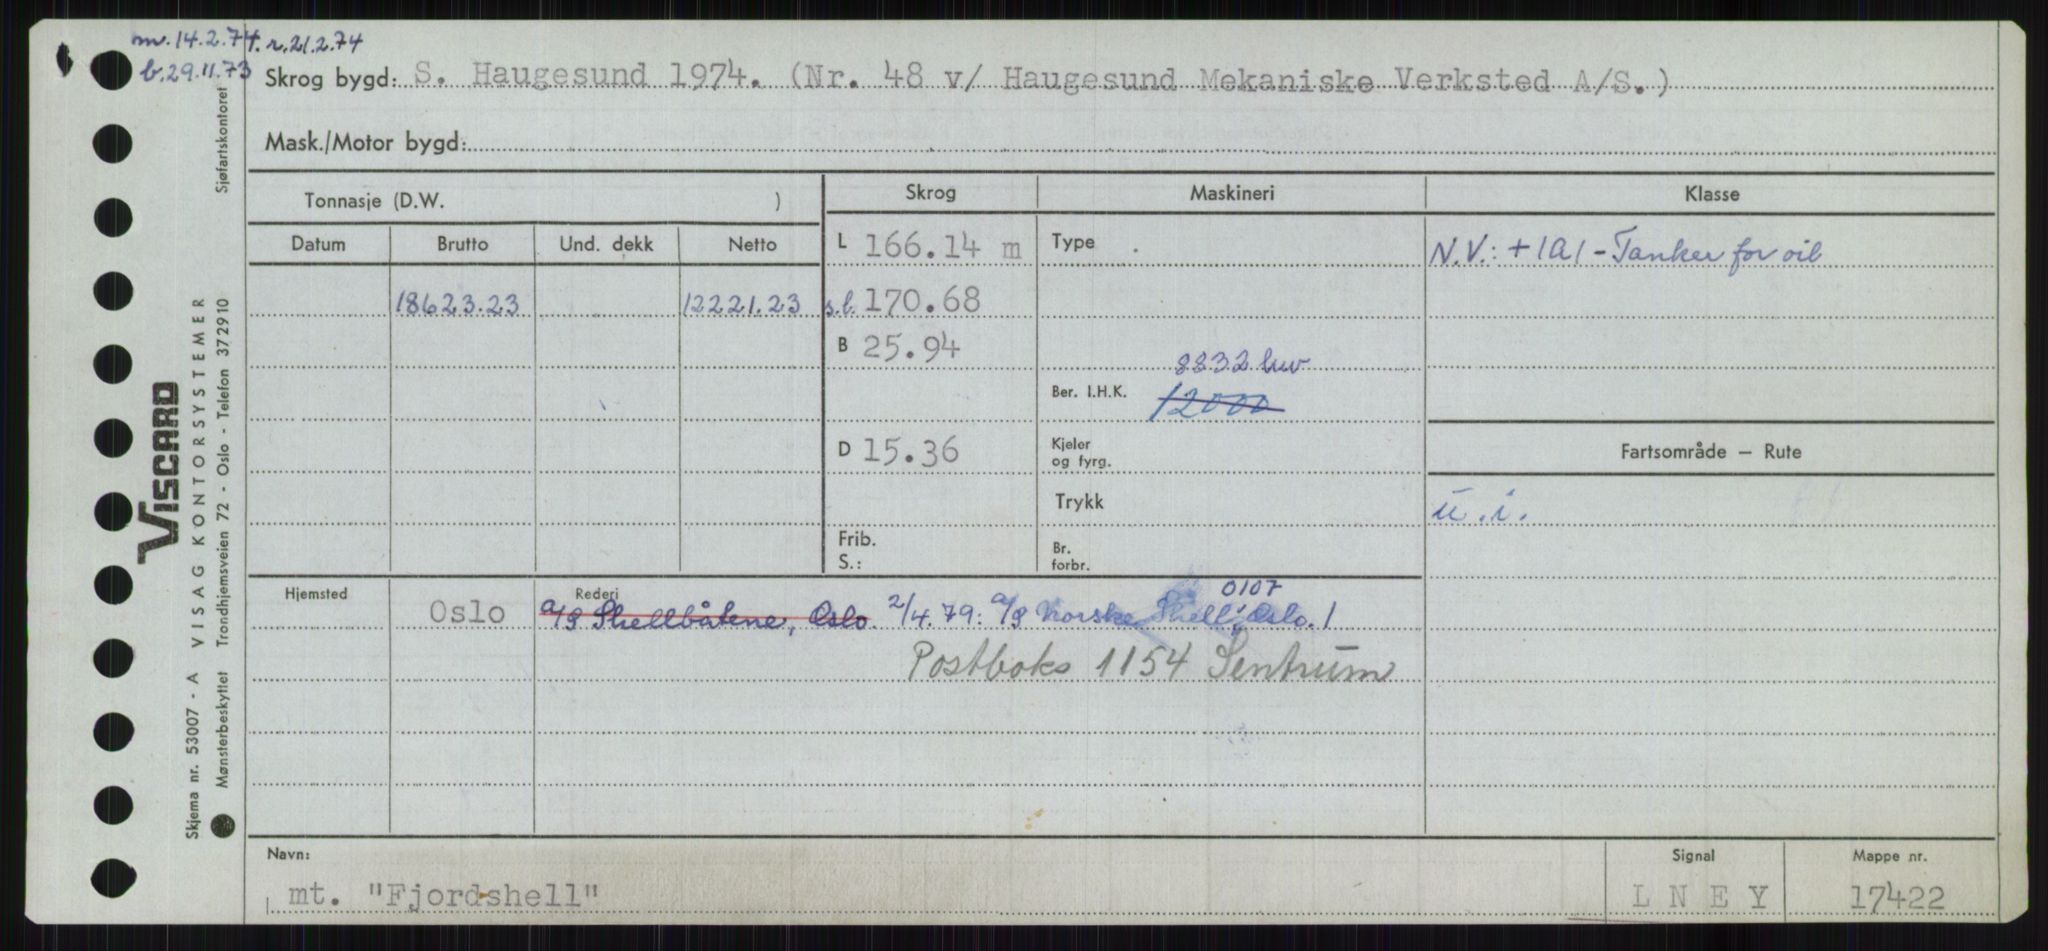 m. 14.2.74. r. 21.2.74
b. 29.11.73
Skrog bygd: S. Haugesund 1974. (Nr. 48 v/ Haugesund Mekaniske Verksted A/S.)
Mask./Motor bygd:
Tonnasje (D.W. )
Skrog
Maskineri
Klasse
Datum Brutto Und. dekk Netto
L 166.14 m
Type
N.V.: +1A1 - Tanker for oil
18623.23 12221.23
s.l. 170.68
B 25.94
8832 kw
Ber. I.H.K. 12000
D 15.36
Kjeler
og fyrg.
Fartsområde – Rute
Trykk
u.i.
Frib.
S.:
Br.
forbr.
Hjemsted
Rederi
0107
Oslo
A/S Shellbåtene, Oslo. 2/4.79: A/S Norske Shell, Oslo. /
Postboks 1154 Sentrum
Navn:
mt. "Fjordshell"
Signal
L N E Y
Mappe nr.
17422
VISCARD
Skjema nr. 53007 - A VISAG KONTORSYSTEMER
Mønsterbeskyttet Trondhjemsveien 72 - Oslo - Telefon 372910 Sjøfartskontoret